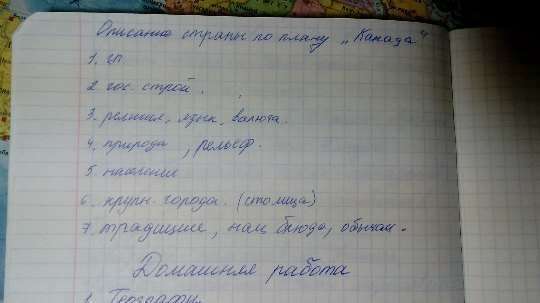 Описание страны по плану „Канада“
1. гп
2. гос. строй.
3. религия, язык, валюта.
4. природа, рельеф.
5. население
6. крупн. города. (столица)
7. традиции, нац блюда, обычаи.
Домашняя работа
1. География